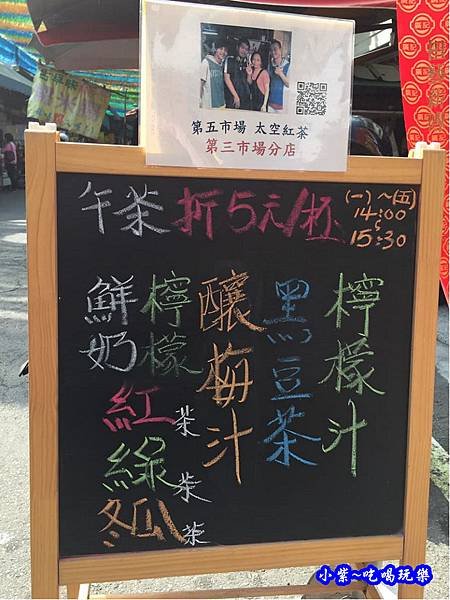 第五市場 太空紅茶
第三市場分店
午茶 折5元/杯
(一)~(五)
14:00
~
15:30
檸檬汁
黑豆茶
釀梅汁
檸檬
鮮奶
紅茶
綠茶
冬瓜茶
小紫~吃喝玩樂